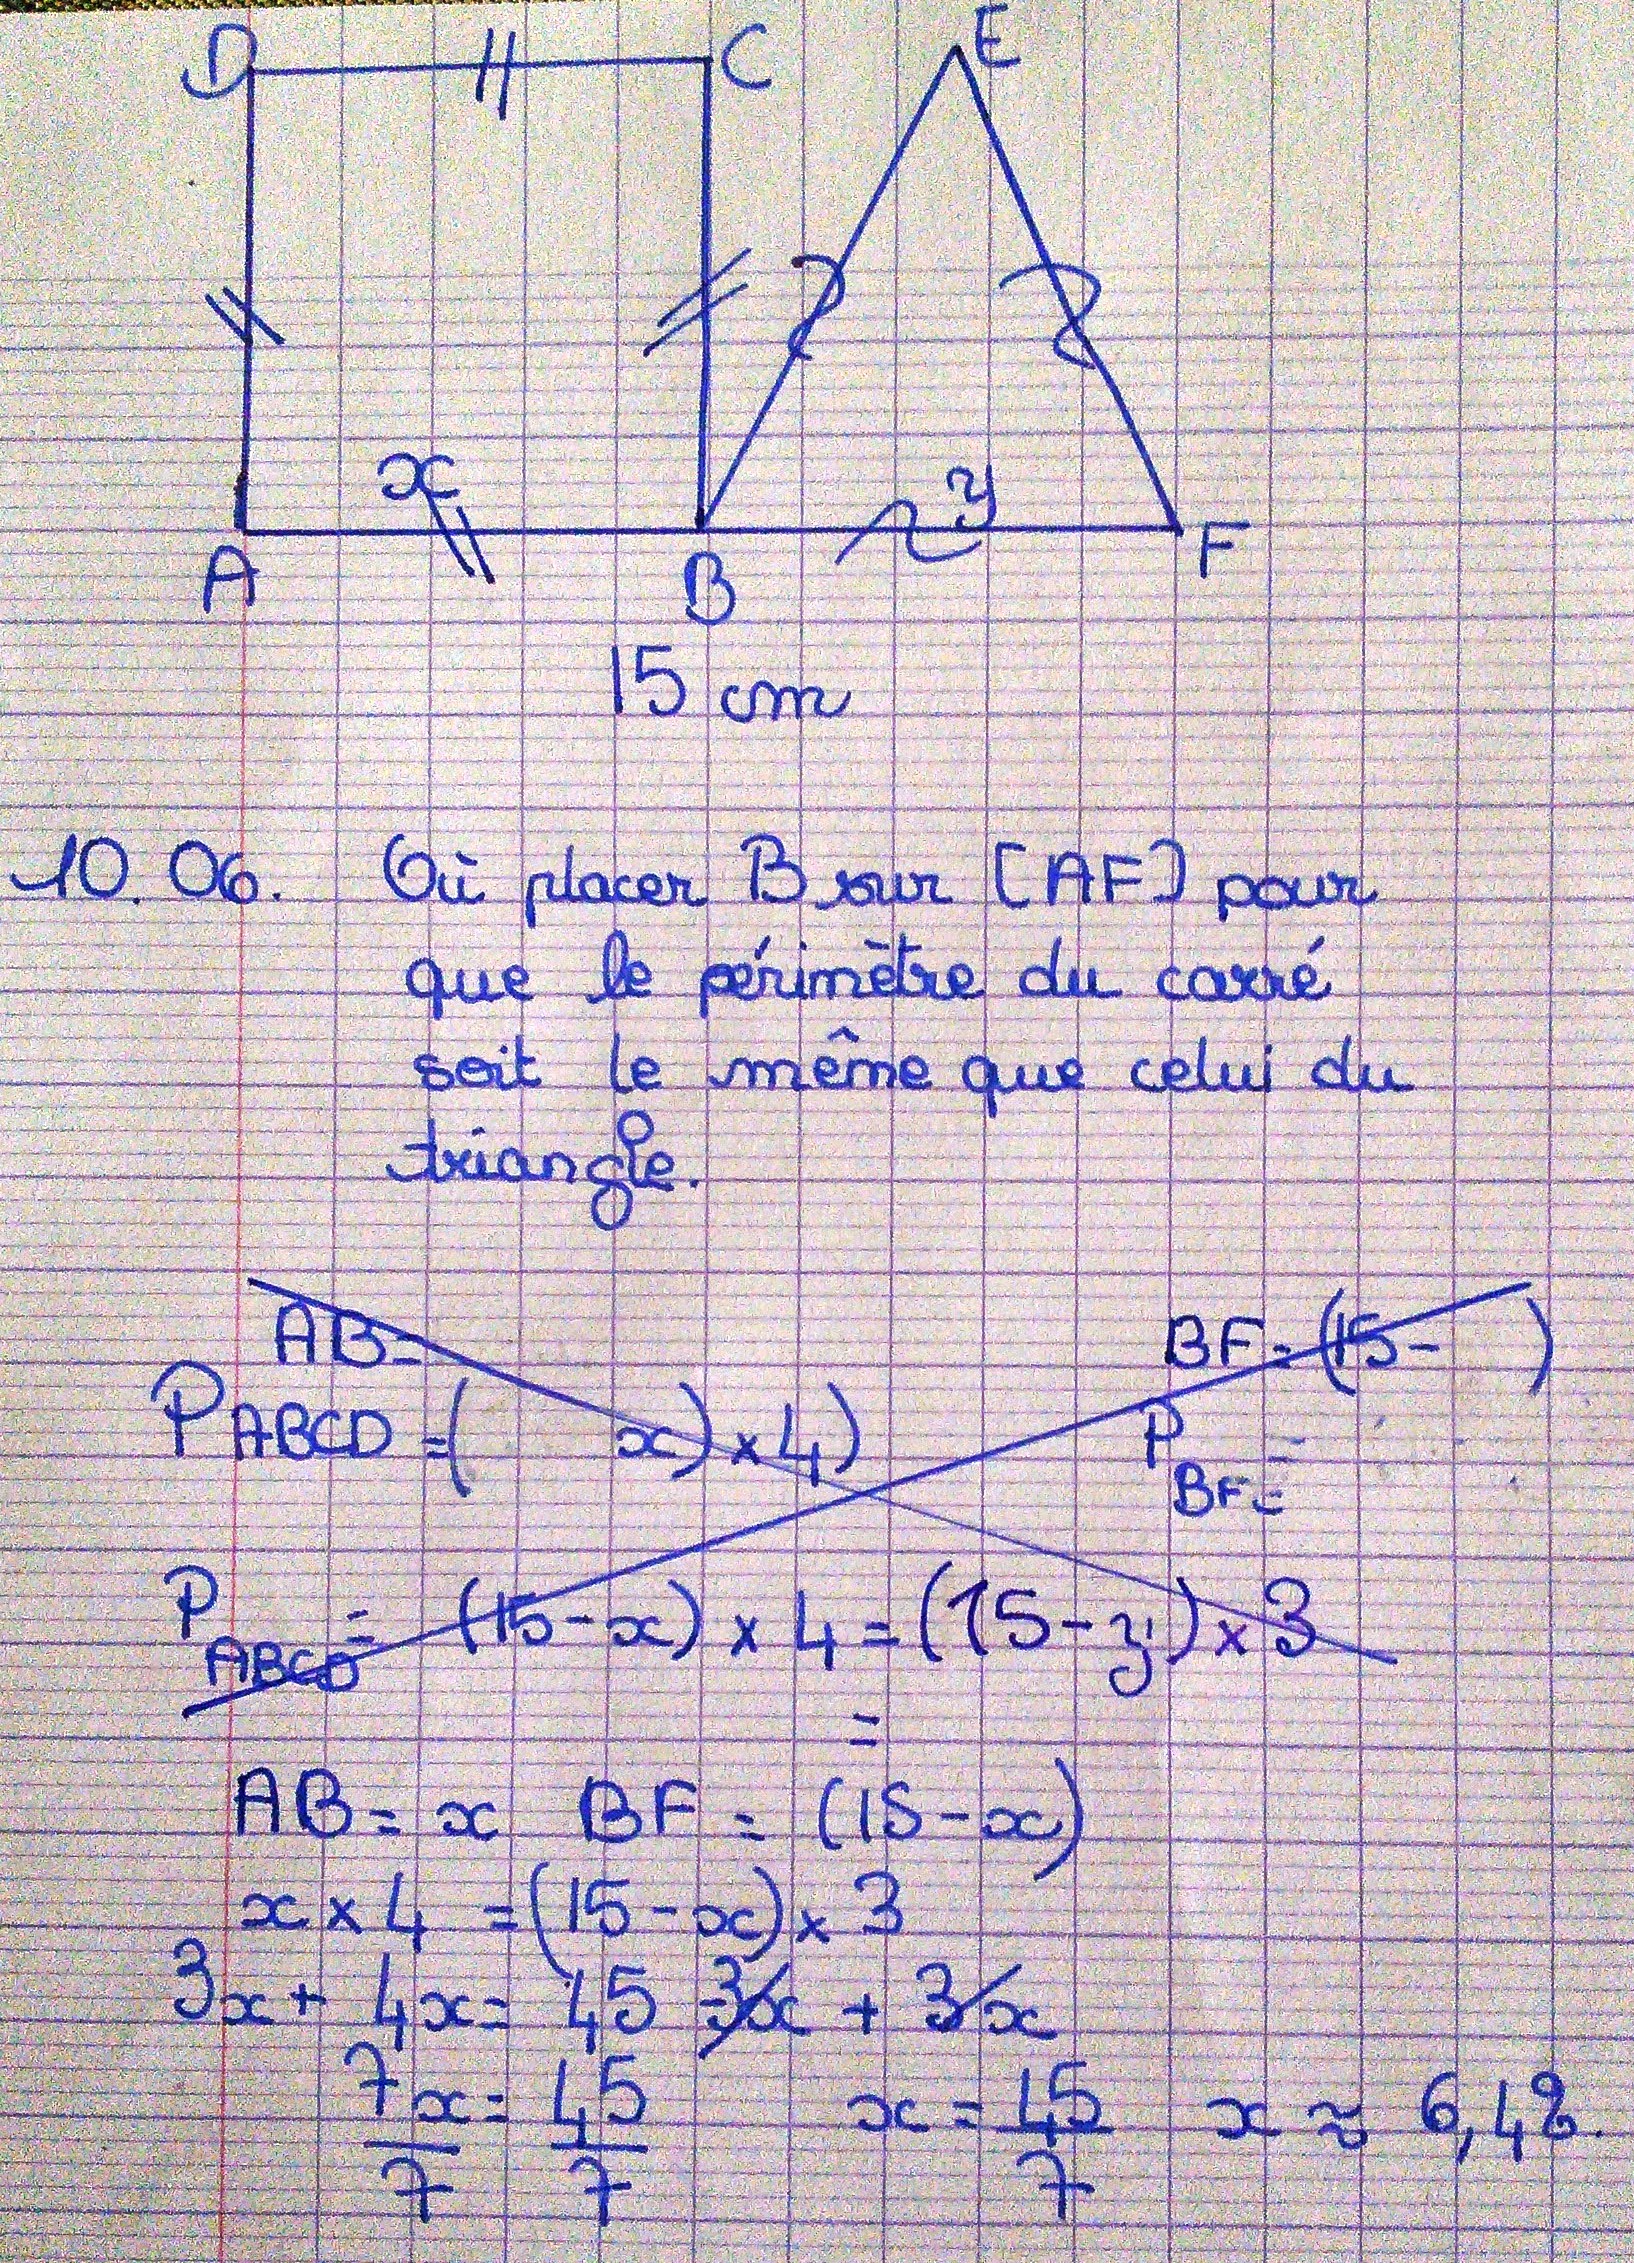 D C E
x y
A B F
15 cm
10.06. Où placer B sur [AF] pour
que le périmètre du carré
soit le même que celui du
triangle.
AB= BF= (15- )
P ABCD =( x) × 4) P BF=
P ABCD= (15-x) × 4 = (15-y) × 3
=
AB = x BF = (15-x)
x × 4 = (15-x) × 3
3x + 4x = 45 -3x + 3x
7x/7 = 45/7 x = 45/7 x ≈ 6,42.